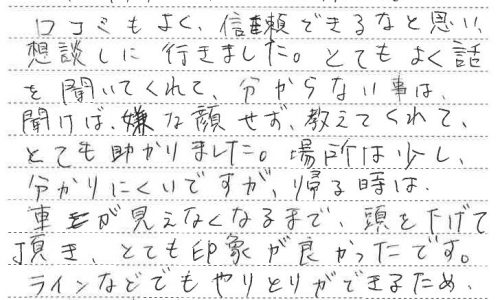 口コミもよく、信頼できるなと思い、
想談しに行きました。とてもよく話
を聞いてくれて、分からない事は、
聞けば、嫌な顔せず、教えてくれて、
とても助かりました。場所は少し、
分かりにくいですが、帰る時は、
車が見えなくなるまで、頭を下げて
頂き、とても印象が良かったです。
ラインなどでもやりとりができるため、